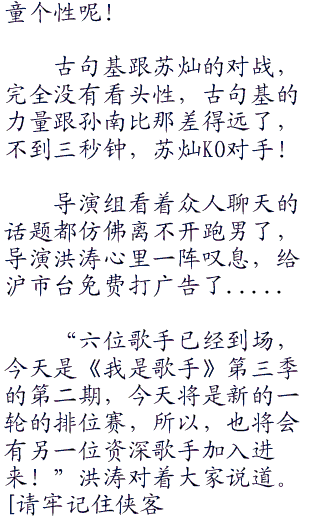 童个性呢！
古句基跟苏灿的对战，
完全没有看头性，古句基的
力量跟孙南比那差得远了，
不到三秒钟，苏灿KO对手！
导演组看着众人聊天的
话题都仿佛离不开跑男了，
导演洪涛心里一阵叹息，给
沪市台免费打广告了.....
“六位歌手已经到场，
今天是《我是歌手》第三季
的第二期，今天将是新的一
轮的排位赛，所以，也将会
有另一位资深歌手加入进
来！”洪涛对着大家说道。
[请牢记住侠客